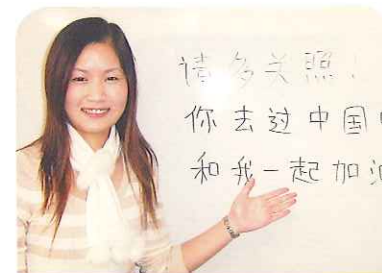 请多关照!
你去过中国
和我一起加